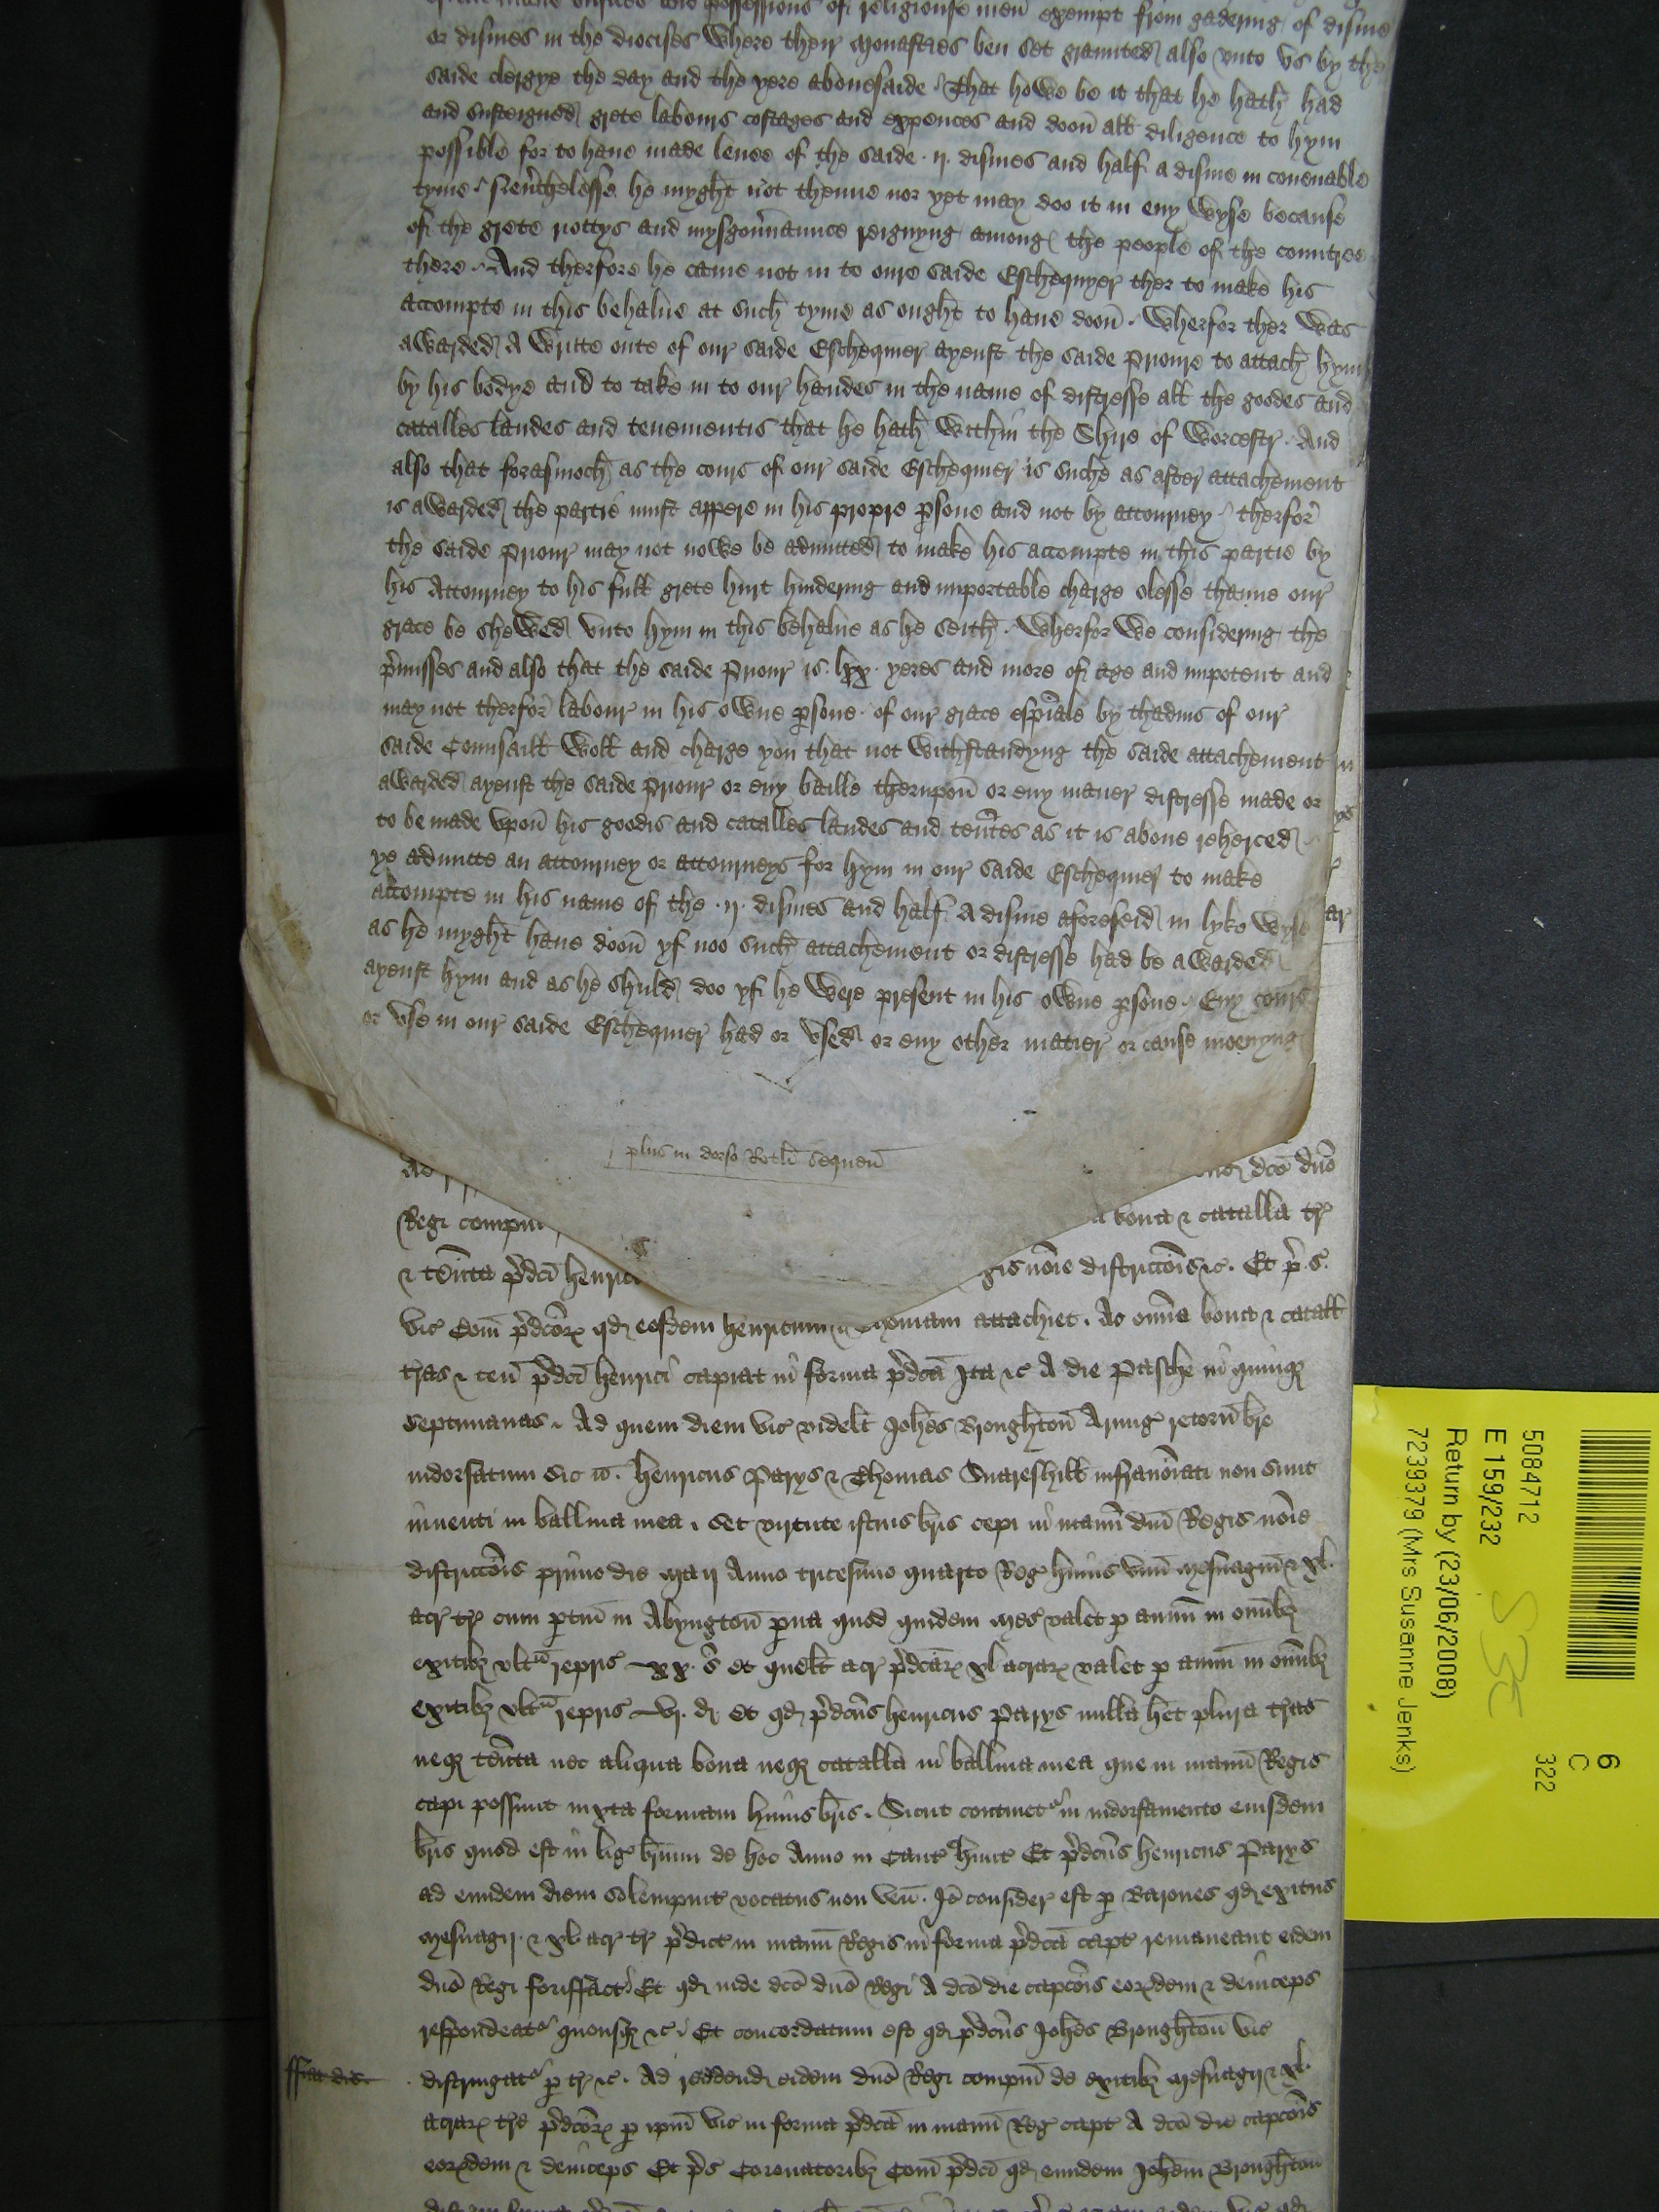 possessions of religiouse men exempt from gadering of disme
or dismes in the diocises where their monasteries ben set graunted also vnto vs by the
saide clergye the day and the yere abouesaide That howe be it that he hath had
and susteigned grete labours costages and expences and doon all diligence to hym
possible for to haue made leuee of the saide .ij. dismes and half a disme in couenable
tyme neuerthelesse he myght not thenne nor yet may doo it in eny wyse because
of the grete riottys and mysgouernaunce reignyng among the people of the countree
there And therfore he came not in to oure saide Eschequyer ther to make his
accompte in this behalue at such tyme as ought to haue doon Wherfor ther was
awarded A writte oute of our saide Eschequier ayenst the saide Prioure to attach hym
by his bodye and to take in to our handes in the name of distresse all the goodes and
catalles landes and tenementis that he hath within the Shire of Worcestr And
also that forasmoch as the cours of our saide Eschequier is suche as after attachement
is awarded the partie must appere in his propre psone and not by attourney therfor
the saide Priour may not nowe be admitted to make his accompte in this partie by
his Attourney to his full grete hurt hindering and importable charge olesse thanne our
grace be shewed vnto hym in this behalue as he seith Wherfor We considering the
pmisses and also that the saide Priour is lxx yeres and more of age and impotent and
may not therfor labour in his owne psone of our grace espiale by thadvis of our
saide Counsaill Woll and charge you that not withstandyng the saide attachement
awarded ayenst the saide Priour or eny baille therupon or eny maner distresse made or
to be made vpon his goodis and catalles landes and tentes as it is aboue reherced
ye admitte an attourney or attourneys for hym in our saide Eschequier to make
accompte in his name of the .ij. dismes and half A disme aforeseid in lyke wyse
as he myght haue doon yf noo such attachement or distresse had be awarded
ayenst hym and as he shuld doo yf he were present in his owne psone Eny cours
or vse in our saide Eschequier had or vsed or eny other matier or cause moevyng
plus in dorso Rotli sequen
Ad dco dno
Regi compm bona & catalla tr
& tenta pdci henrici Regis noie districcois &c. Et p. s.
vic Com pdcor qd eosdem henricum & Thomam attachiet. Ac omia bona & catall
tras & ten pdci henrici capiat in forma pdca Ita &c A die Pasche in quinq
septimanas. Ad quem diem vic videlt Johes Broughton Armig retorn bre
indorsatum sic Henricus Parys & Thomas Swareshill infranoiati non sunt
inuenti in balliua mea. Set virtute istius bris cepi in manu dni Regis noie
districcois primo die Maij Anno tricesimo quarto Reg huius vnu Mesuagiu & xl.
acr tr cum ptin in Abyngton pua quod quidem mes valet p annu in omib
exitib vlt repris xx. s et quelt acr pdcar xl acrar valet p annu in omib
exitib vlt repris vj. d Et qd pdcus henricus Parys nulla het plura tras
neq tenta nec aliqua bona neq catalla in balliua mea que in manu Regis
capi possunt iuxta formam huius bris. Sicut continet in indorsamento eiusdem
bris quod est in lig brium de hoc Anno in Cant Hunt Et pdcus henricus Parys
ad eundem diem solempnit vocatus non ven. Io consider est p Barones qd exitus
Mesuagij & xl acr tr pdict in manu Regis in forma pdca capt remaneant eidem
dno Regi forisfact Et qd inde dco dno Regi A dco die capcois eordem & deinceps
respondeat quousq &c Et concordatum est qd pdcus Johes Broughton vic
ffiat dis. distringat p tr &c. Ad reddend eidem dno Regi compm de exitib Mesuagij & xl.
acrar tre pdcor p ipm vic in forma pdca in manu Reg capt A dco die capcois
eordem & deinceps Et ps Coronatorib Com pdci qd eundem Johem Broughton
5084712
E 159/232
Return by (23/06/2008)
7239379 (Mrs Susanne Jenks)
6
C
322